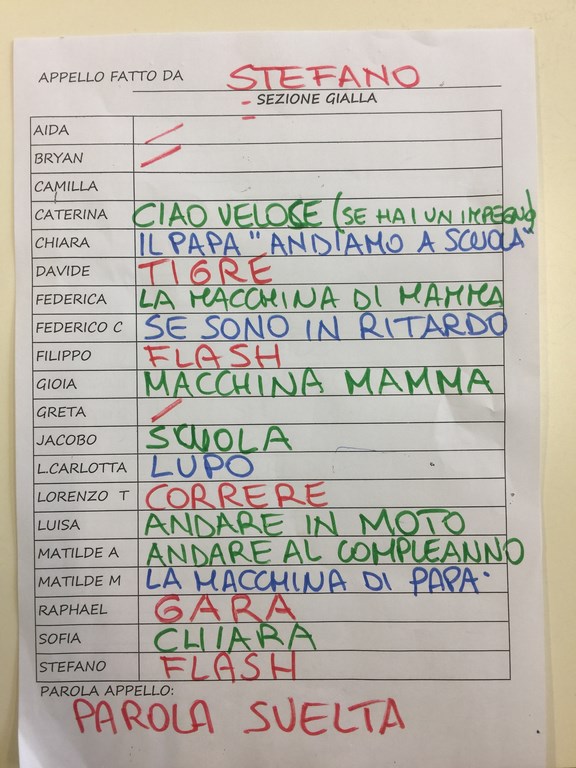 APPELLO FATTO DA STEFANO
SEZIONE GIALLA
AIDA
BRYAN
CAMILLA
CATERINA CIAO VELOCE (SE HAI UN IMPEGNO)
CHIARA IL PAPA "ANDIAMO A SCUOLA"
DAVIDE TIGRE
FEDERICA LA MACCHINA DI MAMMA
FEDERICO C SE SONO IN RITARDO
FILIPPO FLASH
GIOIA MACCHINA MAMMA
GRETA
JACOBO SCUOLA
L.CARLOTTA LUPO
LORENZO T CORRERE
LUISA ANDARE IN MOTO
MATILDE A ANDARE AL COMPLEANNO
MATILDE M LA MACCHINA DI PAPA'
RAPHAEL GARA
SOFIA CHIARA
STEFANO FLASH
PAROLA APPELLO:
PAROLA SVELTA